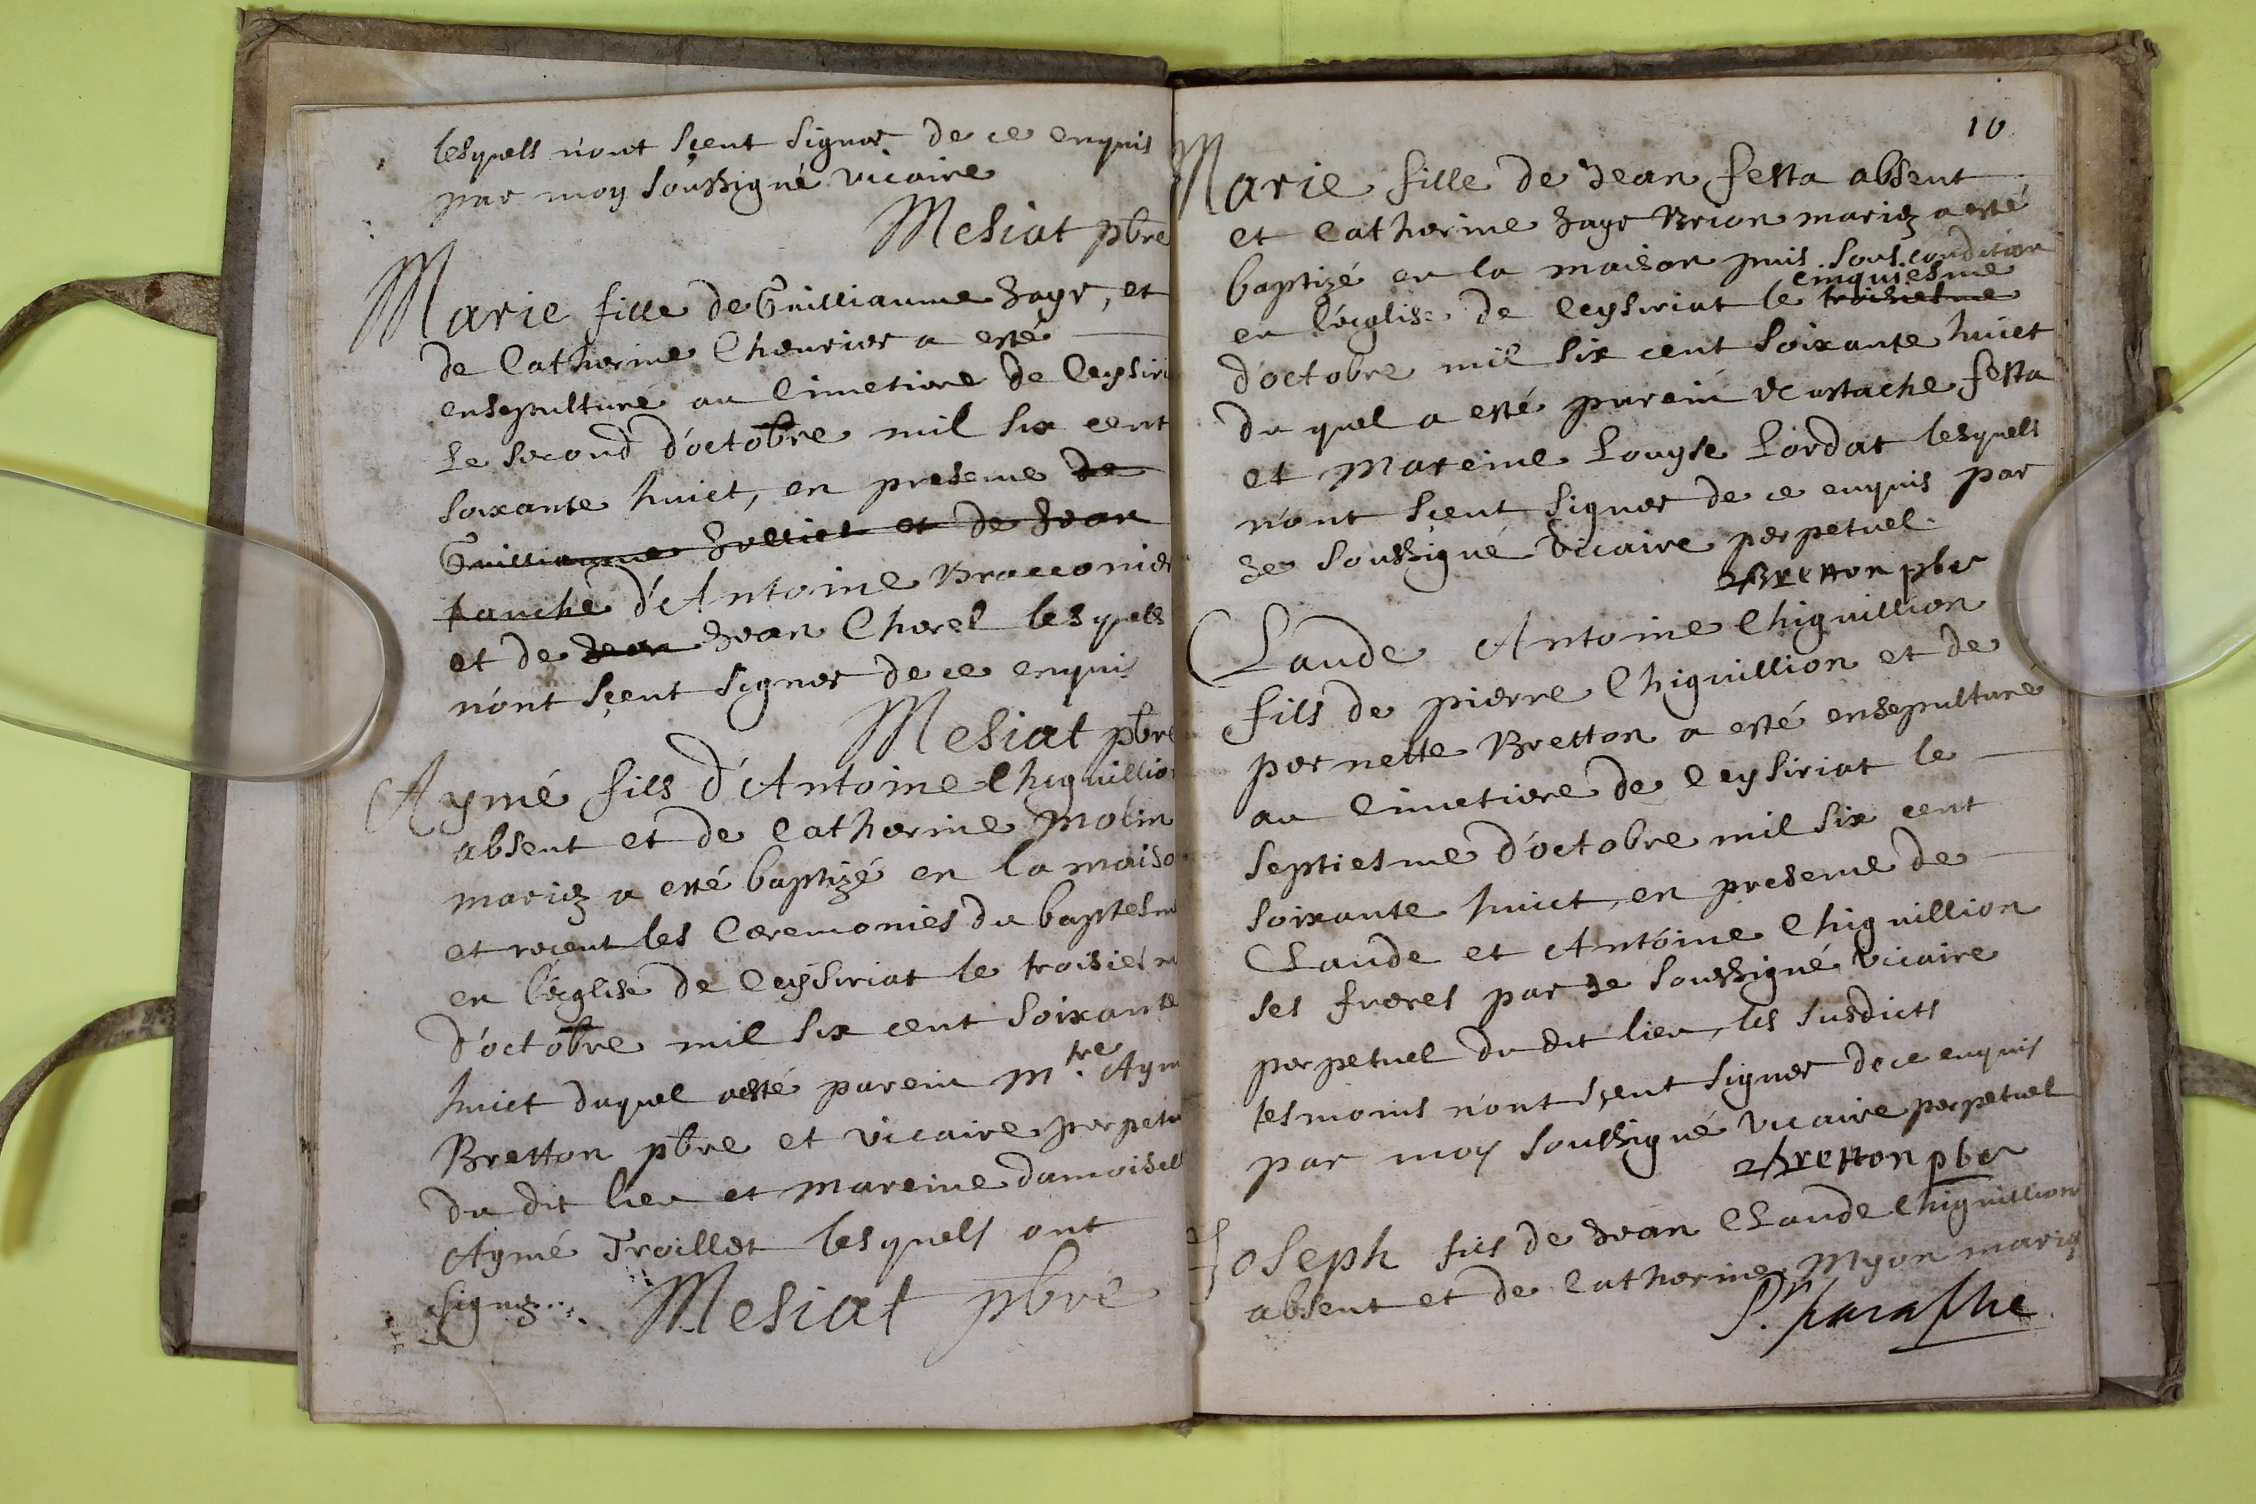 lesquels n'ont sçeut signer de ce enquis
par moy soubsigné vicaire
Mesiat pbre
Marie fille de Guilliaume Jayr, et
de Catherine Chevrier a esté
ensepulturé au Cimetiere de Ceysiri
Le second d'octobre mil six cent
soixante huict, en presence de
Guilliaume et de Jean
d'Antoine Bracconier
et de Jean Jean Chorel lesquels
n'ont sçeut signer de ce enquis
Mesiat pbre
Aymé fils d'Antoine Chiguillion
absent et de Catherine Molin
mariez a esté baptizé en la maiso
et receut les Ceremonies du baptesm
en l'église de Ceysiriat le troisiesm
d'octobre mil six cent soixante
huict duquel a esté parein Mtre. Aym
Bretton pbre et vicaire perpetu
du dit lieu et mareine damoisell
Aymé Troillet lesquels ont
signez
Mesiat pbre
10
Marie fille de Jean festa absent
et Catherine Jayr Brion mariez a esté
baptizé en la maison puis sous condition
cinquiesme
en l'église de Ceysiriat le troisiesme
d'octobre mil six cent soixante huict
du quel a esté parein Eustache festa
et Mareine Louyse Lordat lesquels
n'ont sçeut signer de ce enquis par
Je soubsigné Vicaire perpetuel.
Bretton pbr
Claude Antoine Chiguillion
fils de pierre Chiguillion et de
pernette Bretton a esté ensepulturé
au Cimetiere de Ceysiriat le
septiesme d'octobre mil six cent
soixante huict, en presence de
Claude et Antoine Chiguillion
ses freres par Je soubsigné vicaire
perpetuel du dit lieu, les susdicts
tesmoins n'ont sçeut signer de ce enquis
par moy soubsigné vicaire perpetuel
Bretton pbr
Joseph fils de Jean Claude Chiguillion
absent et de Catherine Myon mariez
Pr. paraphe